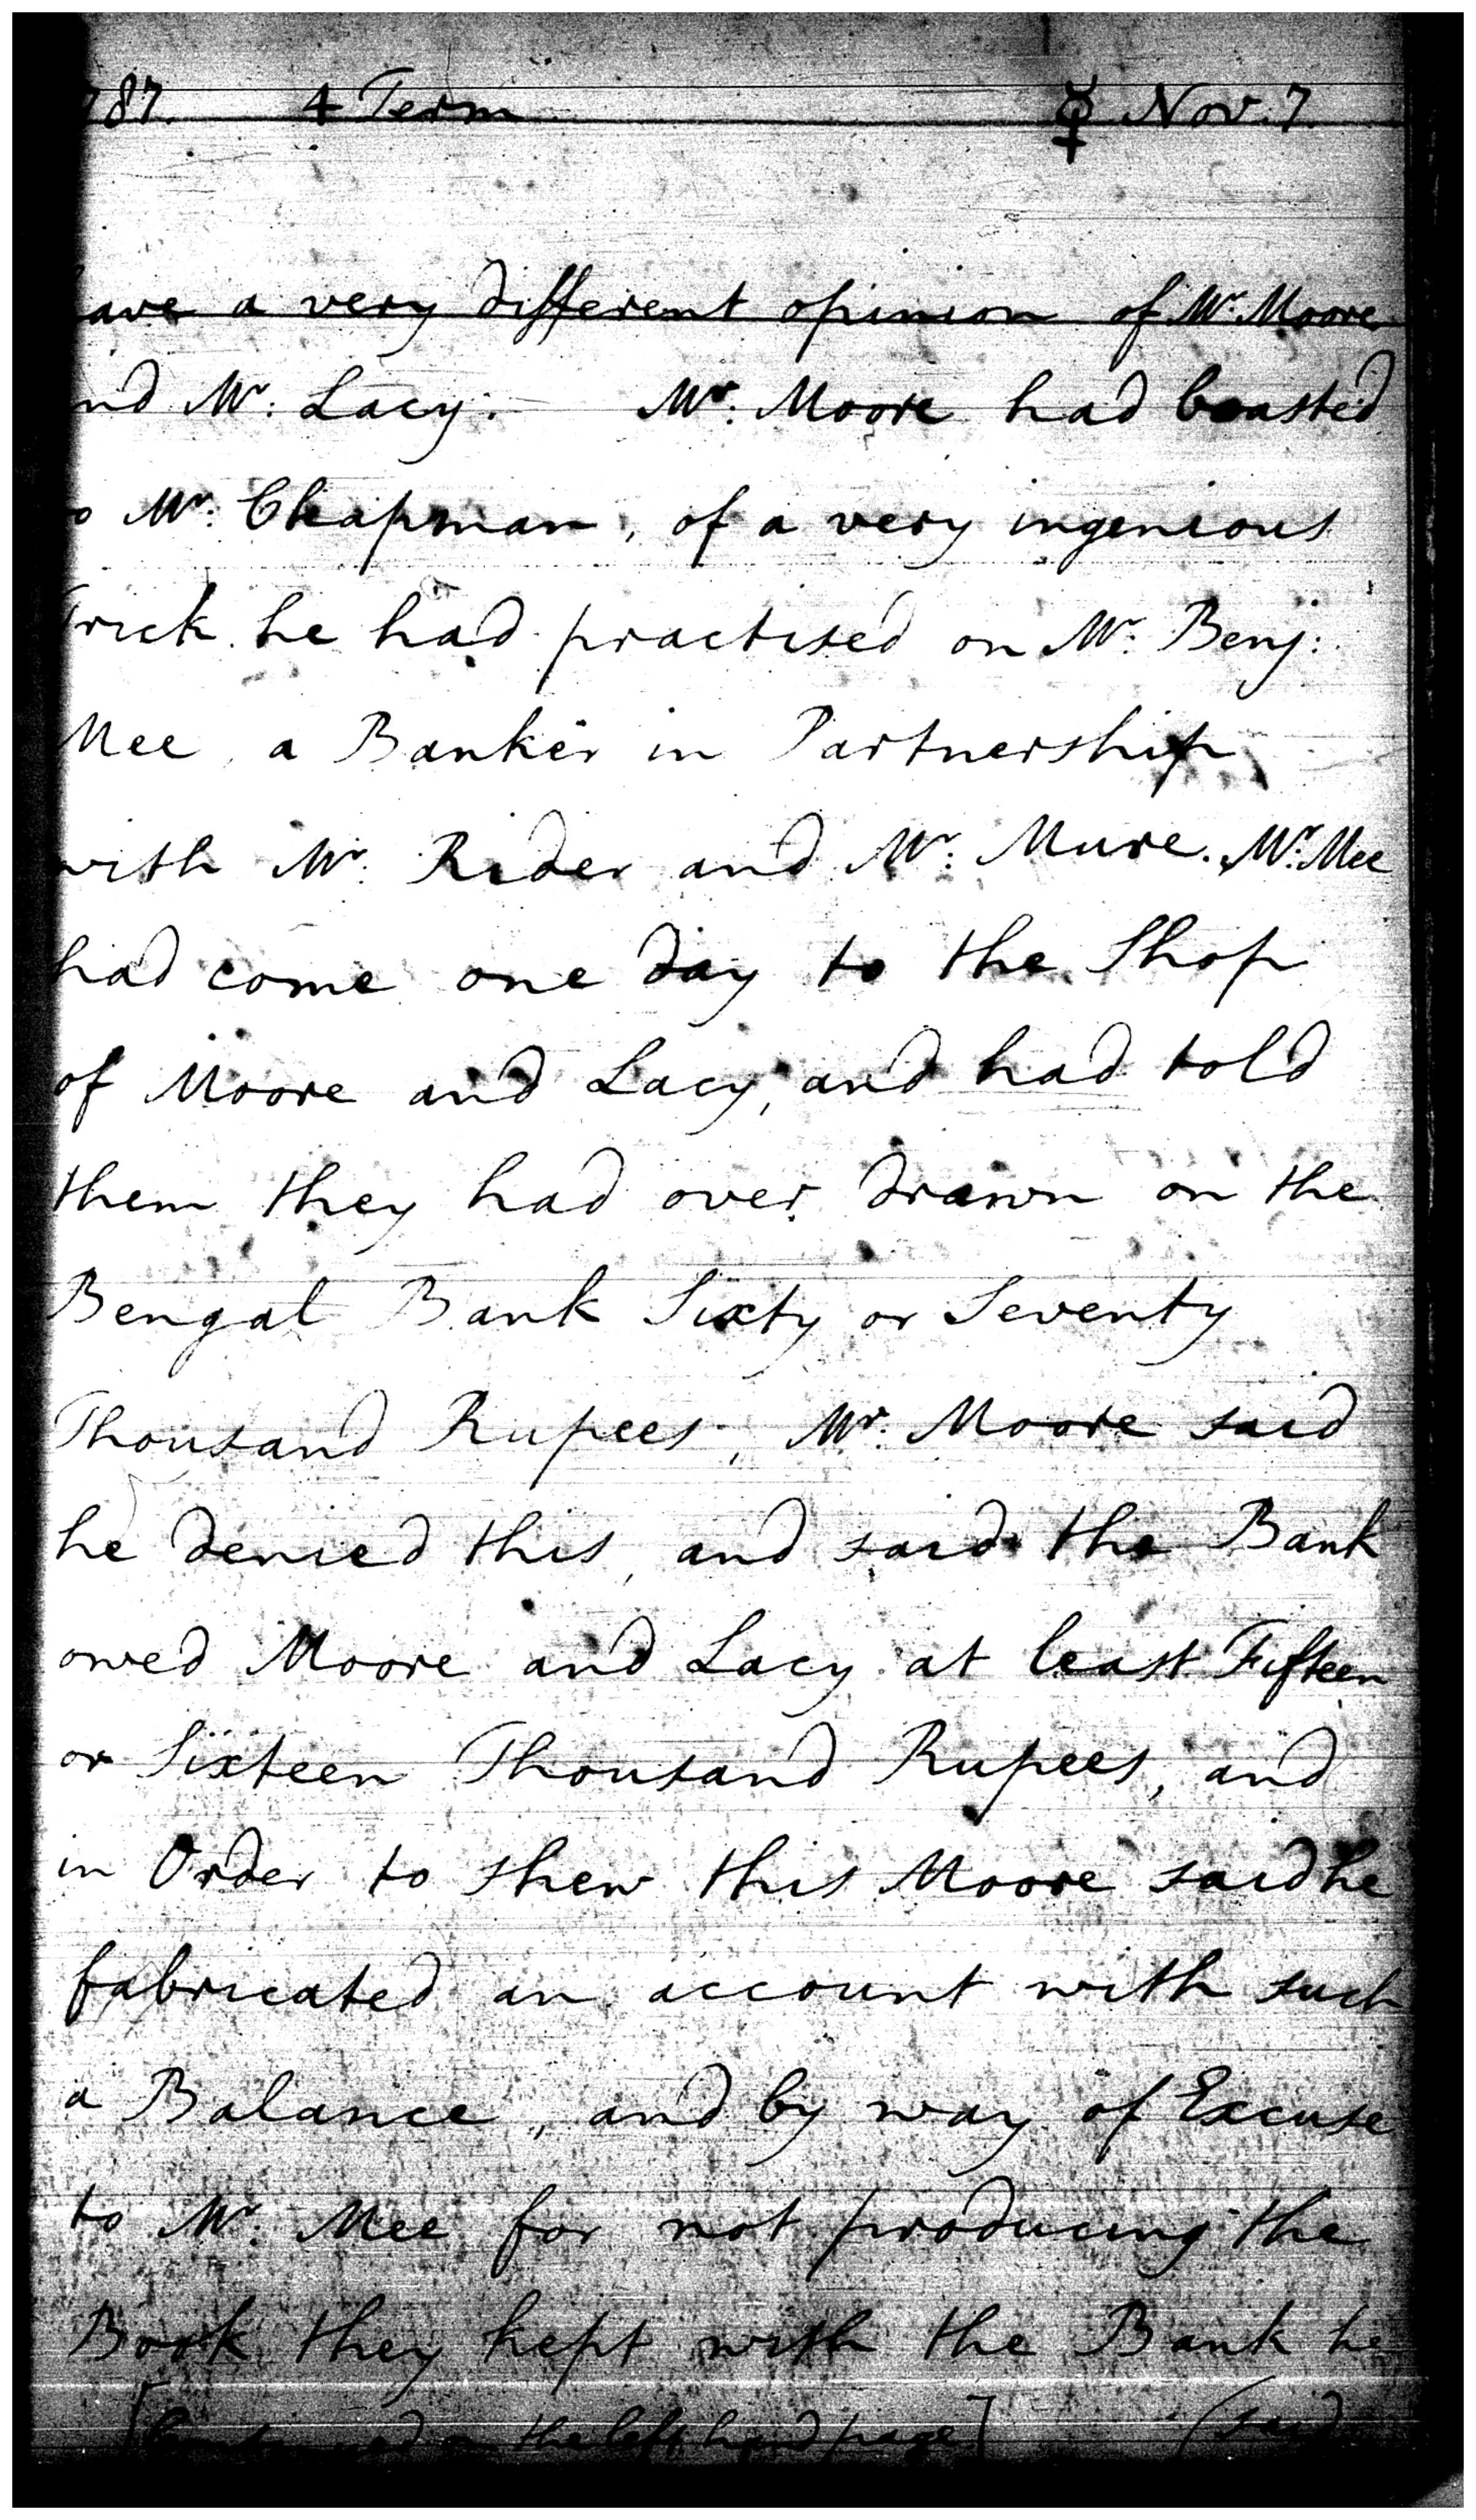 787. 4 Term ☿ Nov. 7.
have a very different opinion of Mr. Moore
and Mr. Lacy. Mr. Moore had boasted
to Mr. Chapman, of a very ingenious
Trick he had practised on Mr. Benj:
Mee, a Banker in Partnership
with Mr. Rider and Mr. Mure. Mr. Mee
had come one day to the Shop
of Moore and Lacy, and had told
them they had over drawn on the
Bengal Bank Sixty or Seventy
Thousand Rupees, Mr. Moore said
he denied this, and said the Bank
owed Moore and Lacy at least Fifteen
or Sixteen Thousand Rupees, and
in Order to shew this Moore said he
fabricated an account with such
a Balance, and by way of Excuse
to Mr. Mee for not producing the
Book they kept with the Bank he
[Continued on the left hand page] (said